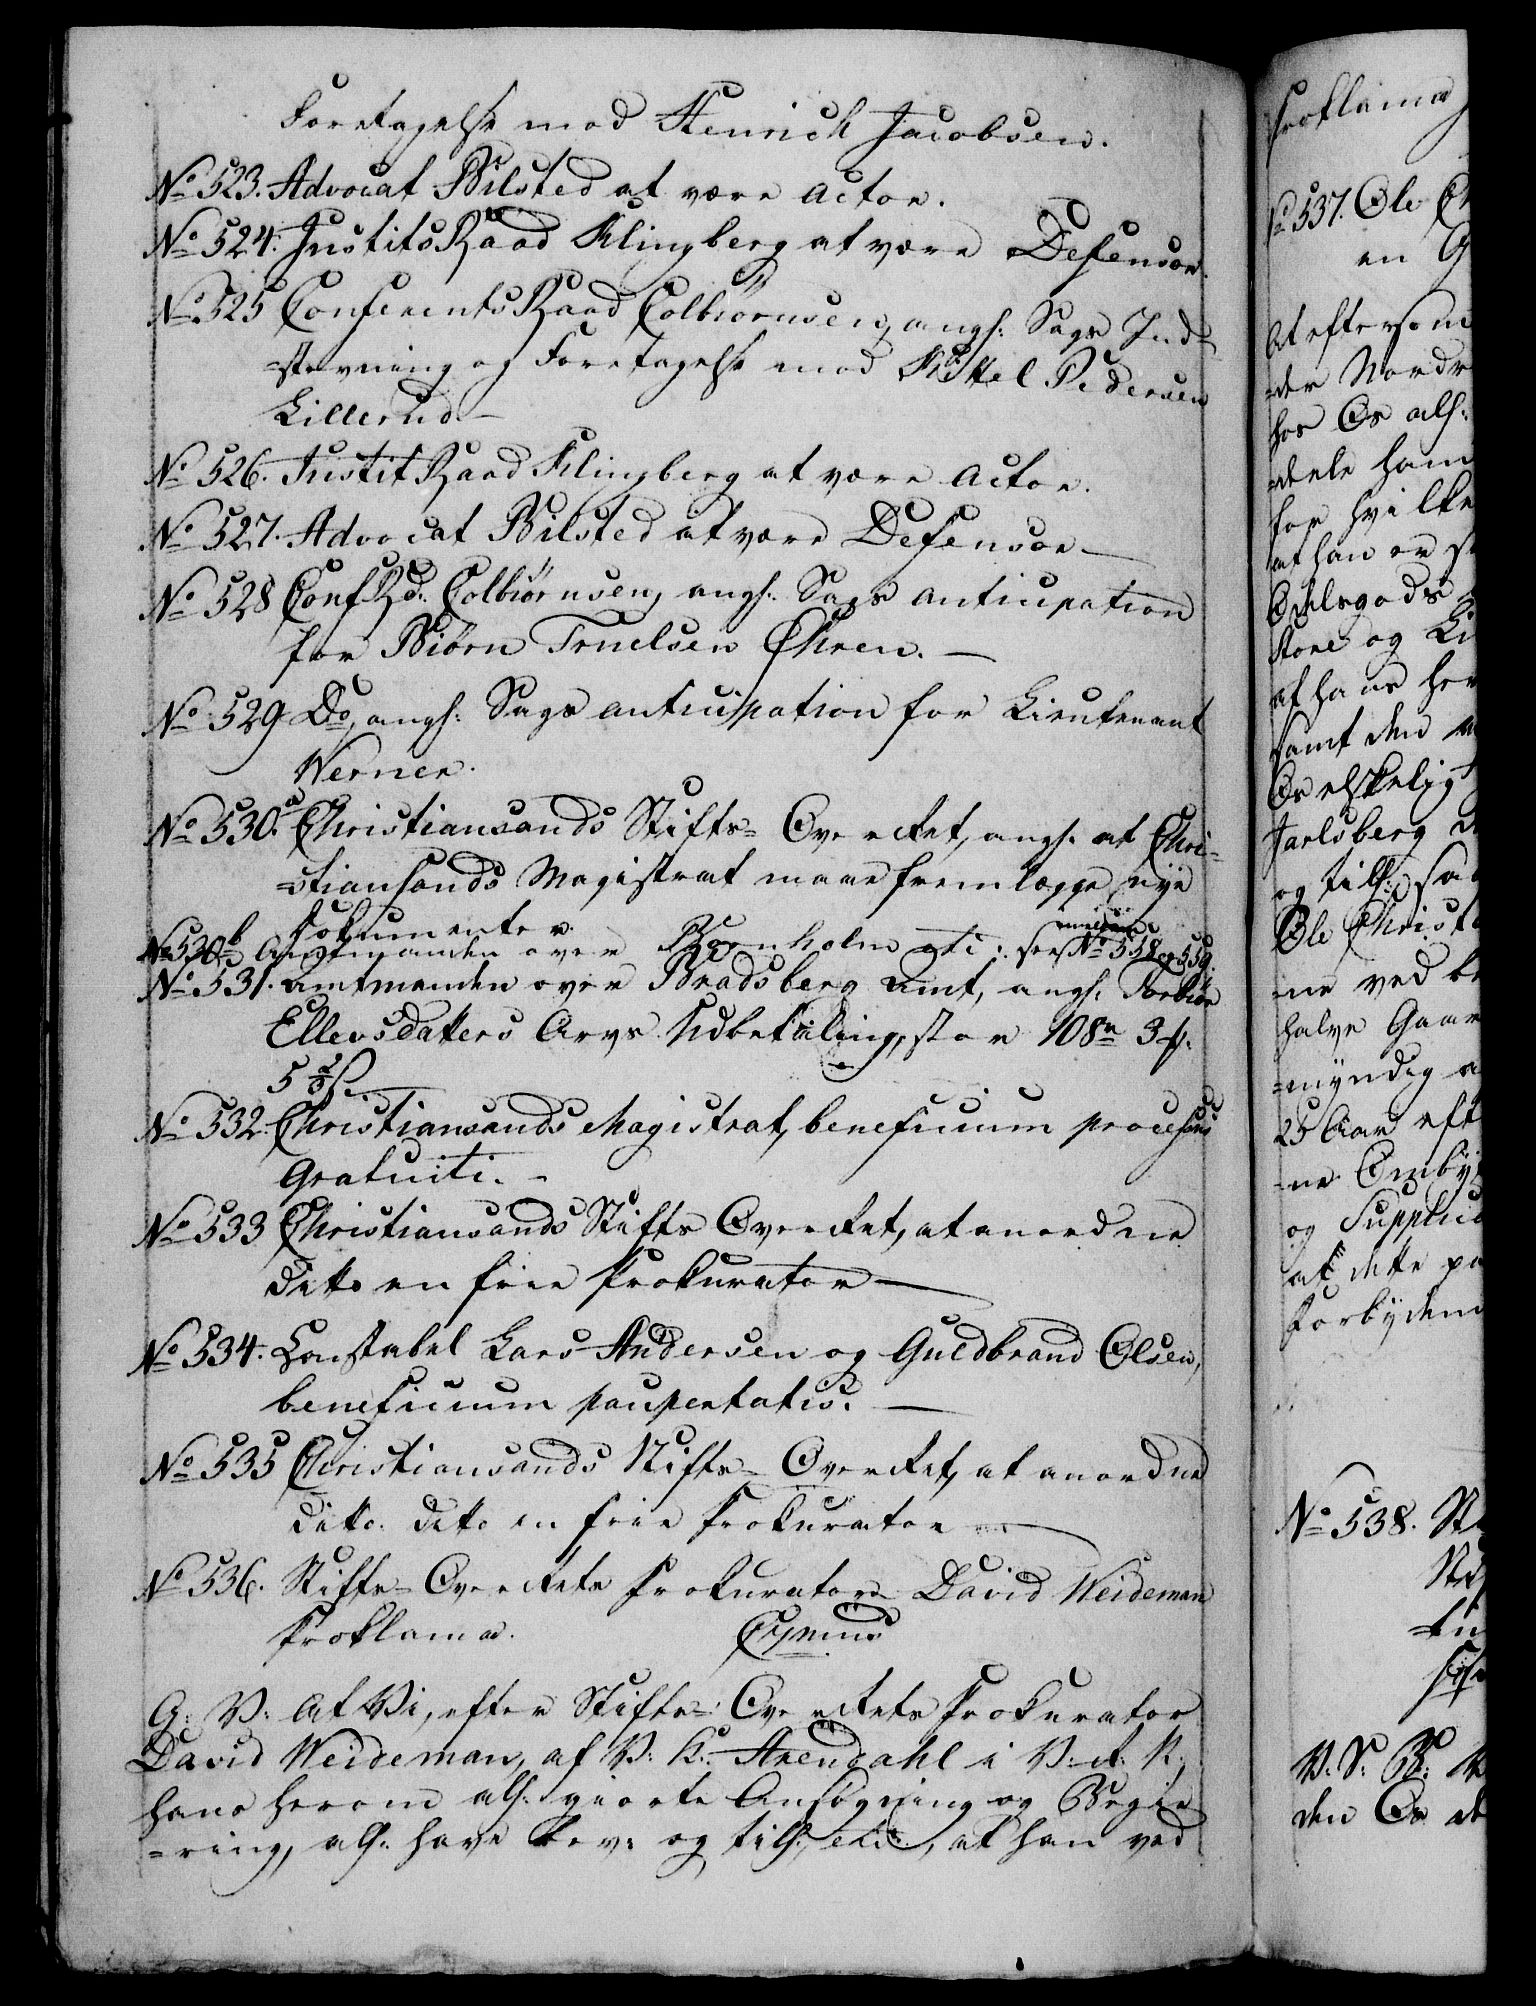 Foretagelse mod Henrich Jacobsen.
No 523. Advocat Bilsted at være Actor.
No 524. JustitsRaad Klingberg at være Defensor.
No 525 ConferentsRaad Colbiørnsen, angl: Sags Ind-
=stevning og Foretagelse mod Kittel Pedersen
Lillerud –
No 526. JustitRaad Klingberg at være Actor.
No 527. Advocat Bilsted at være Defensor –
No 528 ConfRd: Colbiørnsen, angl: Sags Anticipation
for Biørn Truelsen Øhren. –
No 529 Do, angl: Sags anticipation for Lieutenant
Werner.
No 530.a Christiansands Stifts= Overrett, angl. at Chri=
=stiansands Magistrat maae fremlægge nye
Dokumenter.
No 530b Amtmanden over Bornholm etc: see No 558 og 559.
No 531. Amtmanden over Bradsberg Amt, angl: Torbiør
Ellevsdatters Arvs Udbetaling, stor 108 rd 3 ƒ.
5 2/5 s.
No 532. Christiansands Magistrat, beneficium processus
Gratuiti. –
No 533 Christiansands Stifts Overrett, at anordne
ditto en frie Prokurator –
No 534. Constabel Lars Andersen og Guldbrand Olsen,
beneficium paupertatis. –
No 535 Christiansands Stifts= Overrett, at anordne
ditto. ditto en frie Prokurator –
No 536. Stifts= Overretts Prokurator David Weideman
Proklama.
G: V: At Vi, efter Stifts= Overretts Prokurator
David Weideman, af V: K: Arendahl i V: R: N:,
hans herom all: giorte Ansøgning og Begie
=ring, all: have bev: og till:, etc:, at han ved
Proklama
No 537. Ole
en G
At eftersom
=der Nordr
hos Os all:
=dele ham
for hvilke
at han er
Odelsgods
Store og Li
af hans
samt den
Os elskelig
Jarlsberg
og till:
Ole Christ
=ne ved
halve Gaar
=myndig
25 Aar eft
=ne Ombÿ
og Supplica
at dette paa
Forbydend
No 538. St
V: S: G: V
den Os de